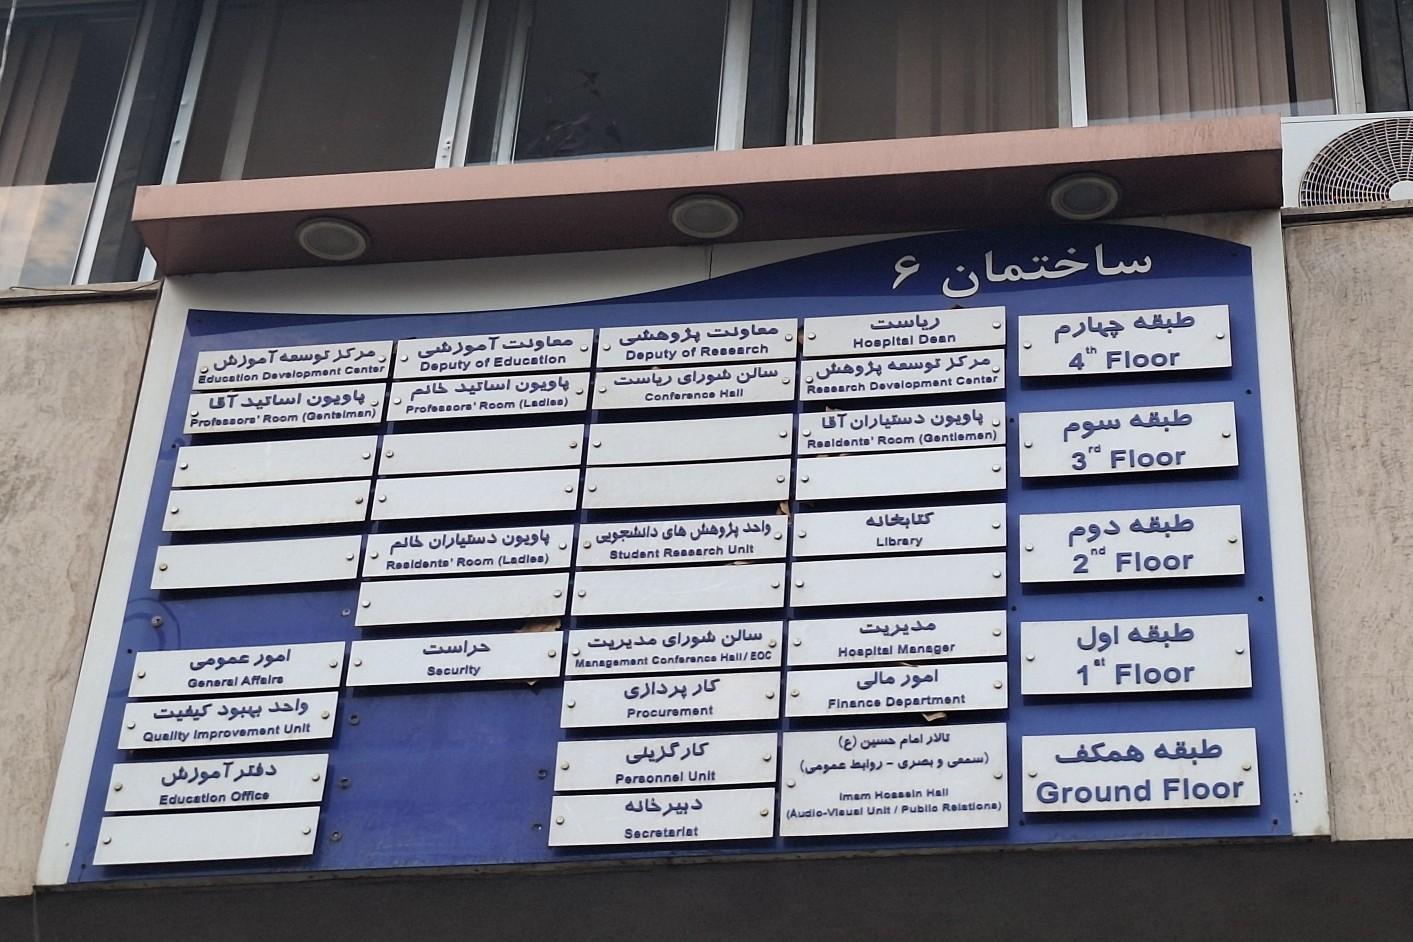 ساختمان ۶
طبقه چهارم
4th Floor
ریاست
Hospital Dean
معاونت پژوهشی
Deputy of Research
معاونت آموزشی
Deputy of Education
مرکز توسعه آموزش
Education Development Center
مرکز توسعه پژوهش
Research Development Center
سالن شورای ریاست
Conference Hall
پاویون اساتید خانم
Professors' Room (Ladies)
پاویون اساتید آقا
Professors' Room (Gentelman)
طبقه سوم
3rd Floor
پاویون دستیاران آقا
Residents' Room (Gentlemen)
طبقه دوم
2nd Floor
کتابخانه
Library
واحد پژوهش های دانشجویی
Student Research Unit
پاویون دستیاران خانم
Residents' Room (Ladies)
طبقه اول
1st Floor
مدیریت
Hospital Manager
سالن شورای مدیریت
Management Conference Hall / EOC
حراست
Security
امور عمومی
General Affairs
امور مالی
Finance Department
کار پردازی
Procurement
واحد بهبود کیفیت
Quality Improvement Unit
طبقه همکف
Ground Floor
تالار امام حسین (ع)
(سمعی و بصری - روابط عمومی)
Imam Hossein Hall
(Audio-Visual Unit / Public Relations)
کارگزینی
Personnel Unit
دفتر آموزش
Education Office
دبیرخانه
Secretariat